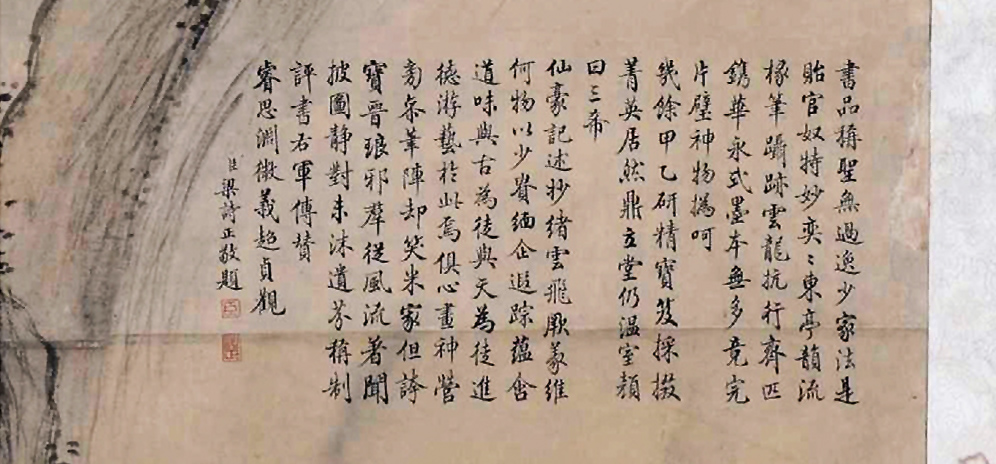 書品稱聖無過逸少家法是
貽官奴特妙奕〻東亭韻流
椽筆躡跡雲龍抗行齊匹
鐫華永式墨本無多竟完
片璧神物撝呵
幾餘甲乙研精寶笈採掇
菁英居然鼎立堂仍溫室顏
曰三希
仙豪記述抄緒雲飛厥義維
何物以少貴緬企遐踪蘊含
道味與古為徒與天為徒進
德游藝於此焉俱心畫神營
旁參筆陣却笑米家但誇
寶晉琅邪羣從風流著聞
披圖靜對未沫遺芬稱制
評書右軍傳贊
睿思淵微義超貞觀
臣梁詩正敬題